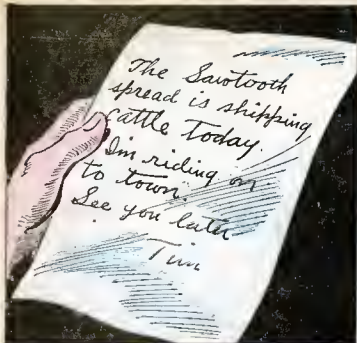 The Sawtooth
spread is shipping
cattle today.
I'm riding on
to town.
See you later
Tim